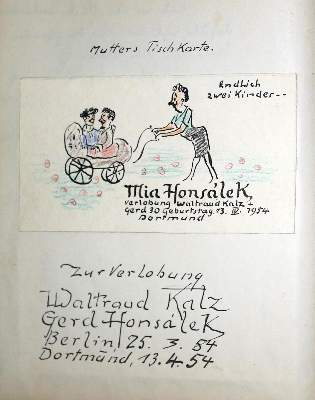 Mutters Tischkarte.
Endlich
zwei Kinder--
Mia Honsálek
Verlobung Waltraud Kalz +
Gerd 30 Geburtstag 13. IV. 1954
Dortmund
Zur Verlobung
Waltraud Kalz
Gerd Honsálek
Berlin 25. 3. 54
Dortmund, 13.4.54